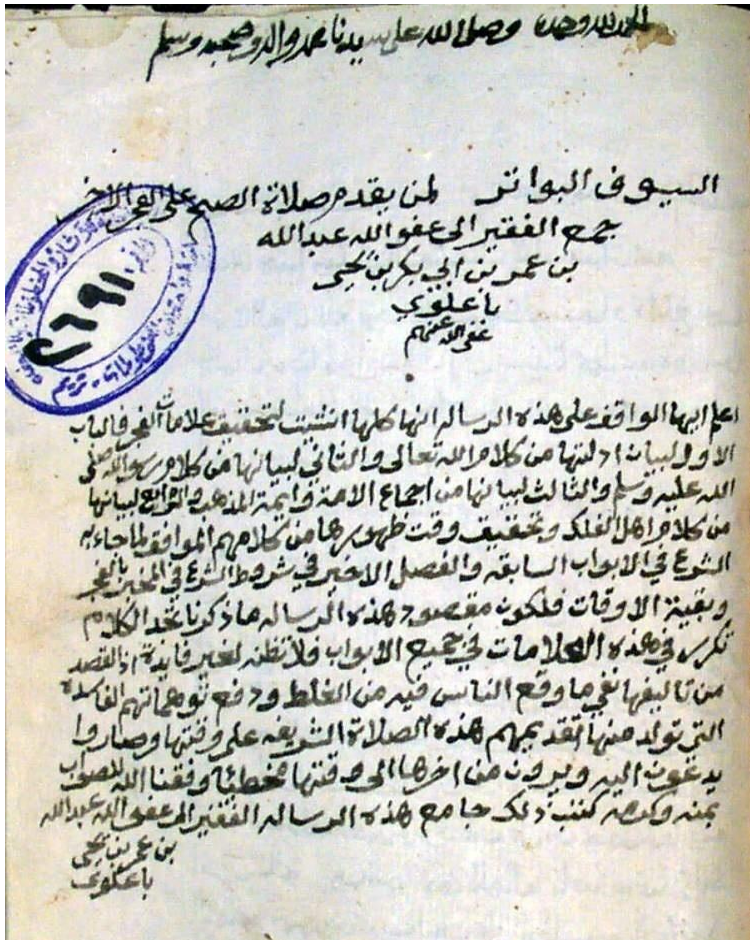 الحمد لله وحده وصلى الله على سيدنا محمد واله وصحبه وسلم
السيوف البواتر لمن يقدم صلاة الصبح على الفجر الاخر
جمع الفقير الى عفو الله عبدالله
بن عمر بن ابي بكر بن يحيى
باعلوي
عفى الله عنهم
٢٦٩١
تريم
اعلم ايها الواقف على هذه الرساله انها كلها انشئت لتحقيق علامات الفجر فالباب
الاول لبيان ادلتها من كلام الله تعالى والثاني لبيانها من كلام رسول الله صلى
الله عليه وسلم والثالث لبيانها من اجماع الامة وايمة المذهب والرابع لبيانها
من كلام اهل الفلك وتحقيق وقت ظهورها من كلامهم الموافق لما جاء به
الشرع في الابواب السابقه والفصل الاخير في شروط الشرع في المخبرين بالفجر
وبقية الاوقات فلكون مقصود هذه الرساله ما ذكرنا تجد الكلام
تكرر في هذه العلامات في جميع الابواب فلا تظنه لغير فايدة اذ القصد
من تاليفها نفي ما وقع الناس فيه من الغلط ودفع توهماتهم الفاسدة
التي تولد منها تقديمهم هذه الصلاة الشريفه على وقتها وصاروا
يدعون اليه ويرون من اخرها الى وقتها مخطئا وفقنا الله للصواب
بمنه وكرمه كتب ذلك جامع هذه الرساله الفقير الى عفو الله عبدالله
بن عمر بن يحيى
باعلوي